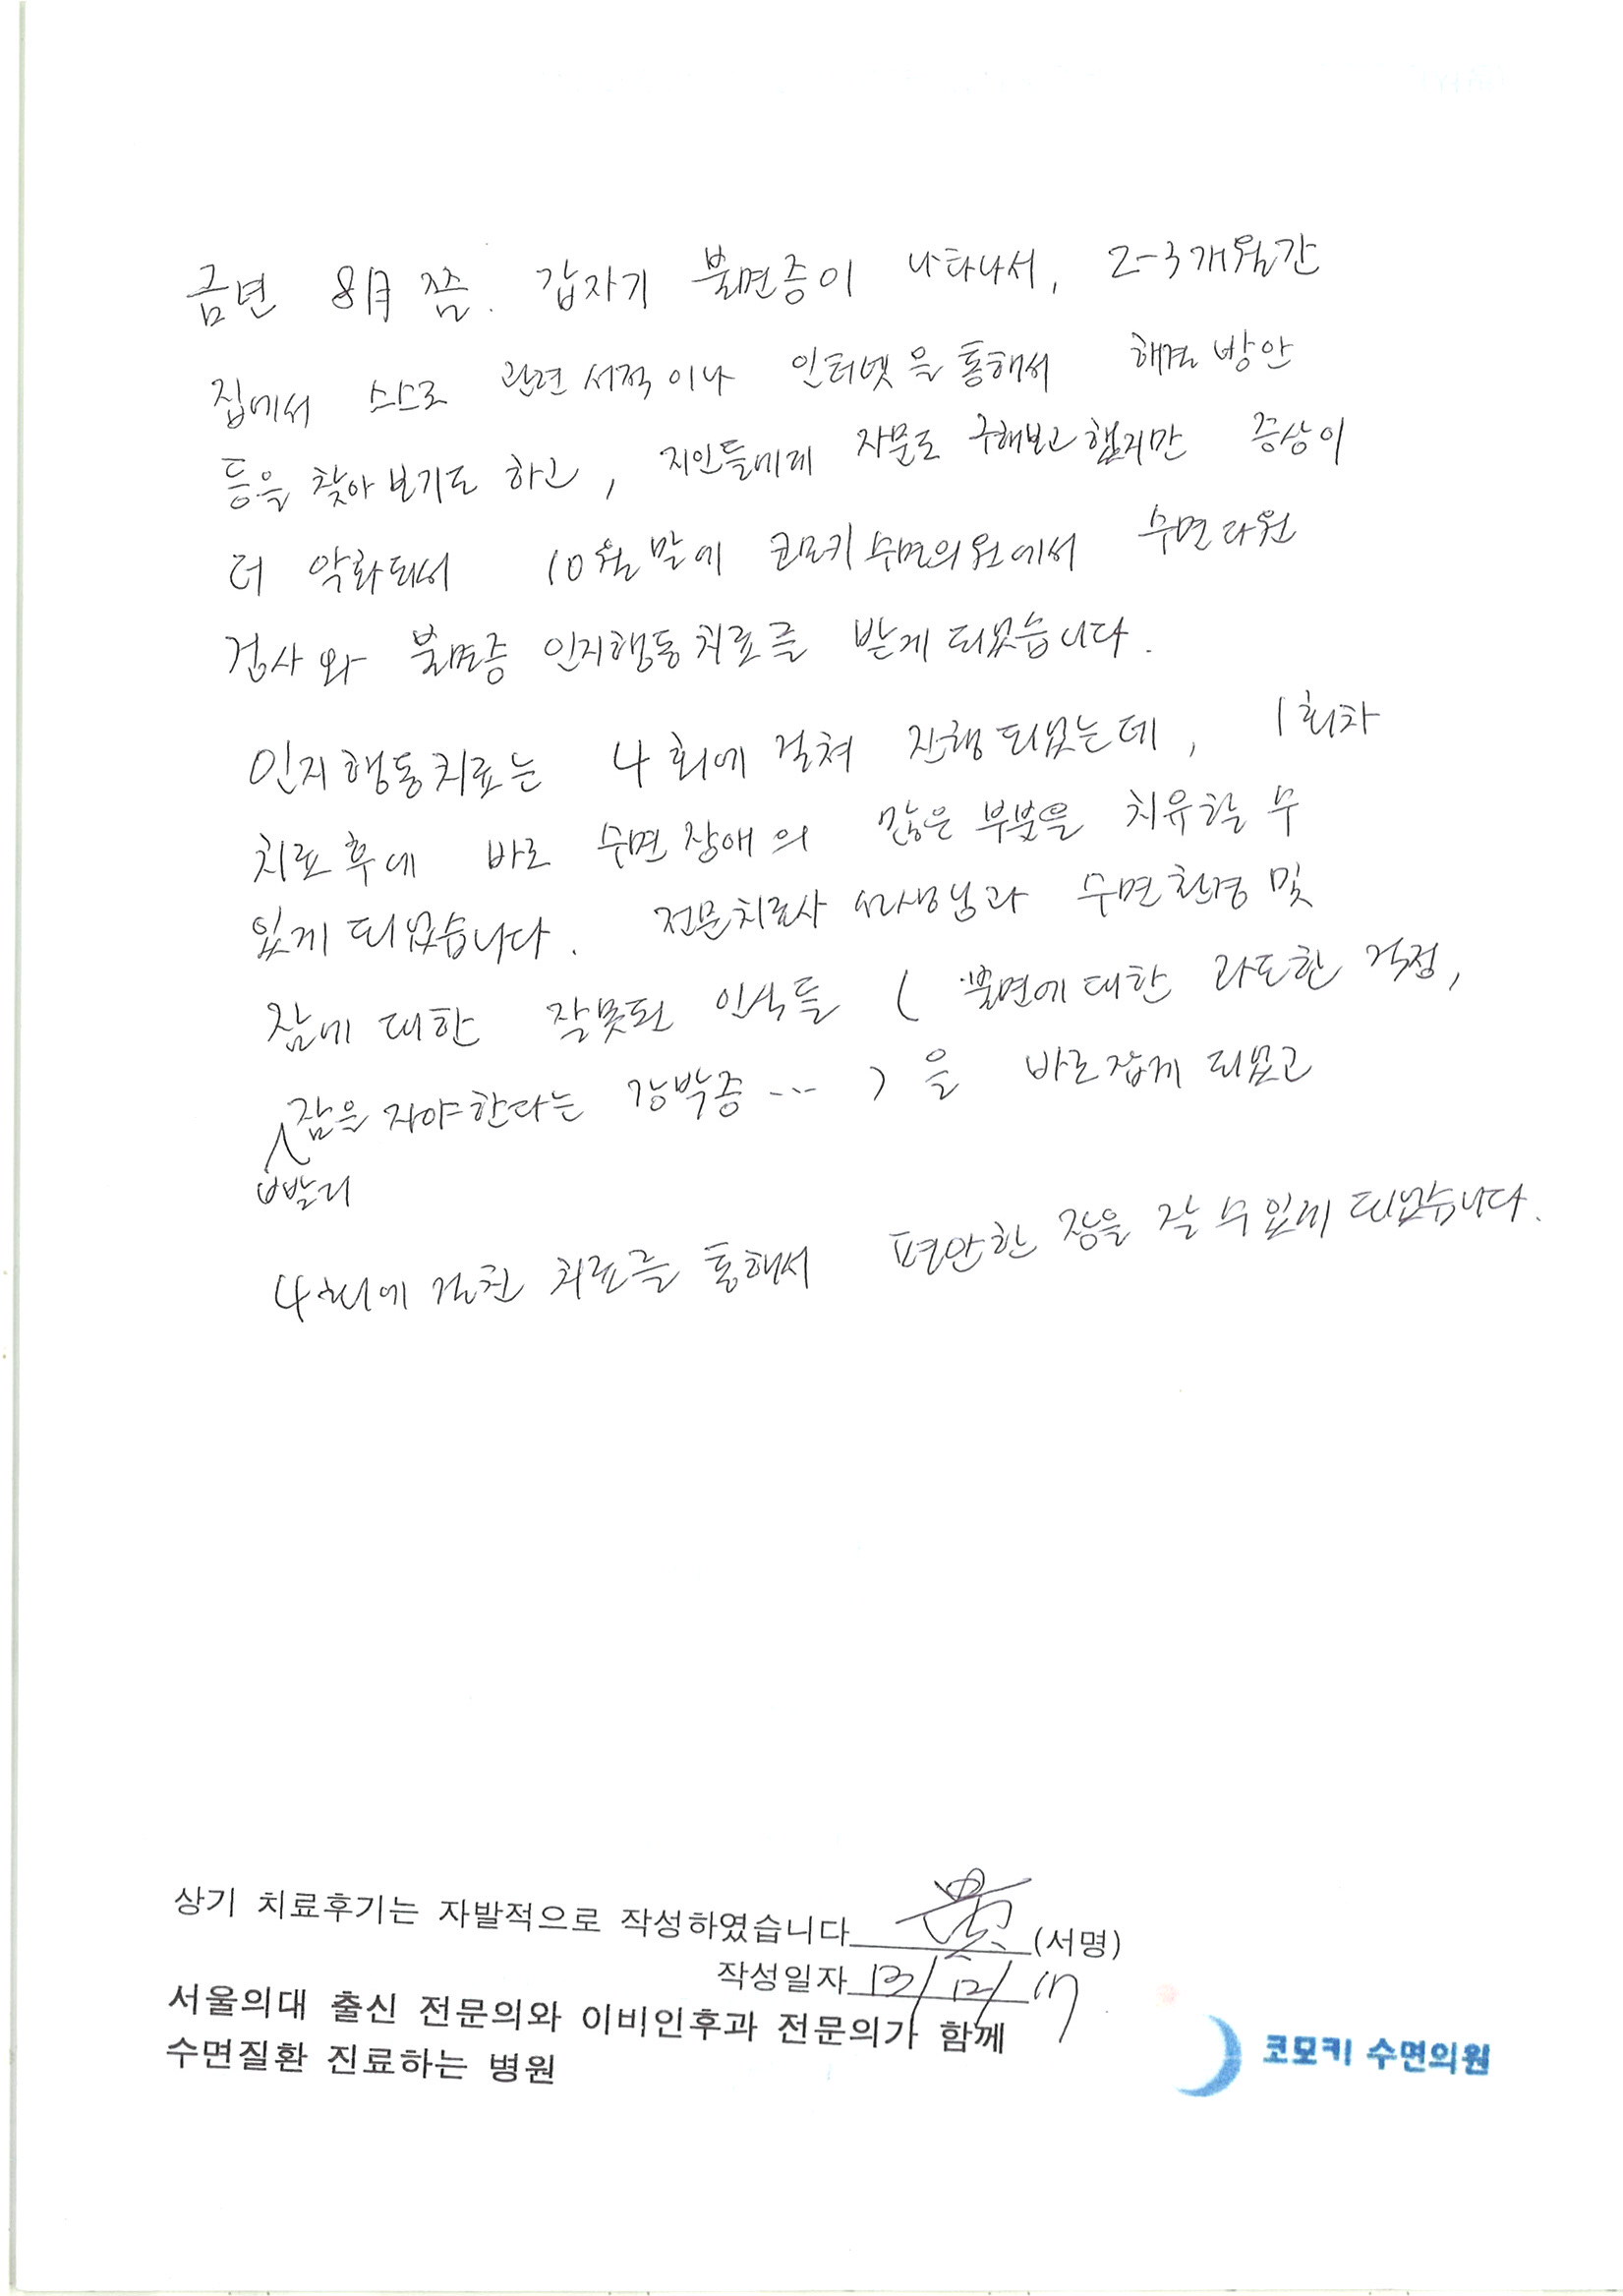 금년 8月쯤. 갑자기 불면증이 나타나서, 2-3개월간
집에서 스스로 관련 서적이나 인터넷을 통해서 해결방안
등을 찾아보기도 하고, 지인들에게 자문도 구해보고 했지만 증상이
더 악화되서 10월말에 코모키 수면의원에서 수면다원
검사와 불면증 인지행동치료를 받게 되었습니다.
인지행동치료는 4회에 걸쳐 진행되었는데, 1회차
치료후에 바로 수면장애의 많은 부분을 치유할 수
있게 되었습니다. 전문치료사 선생님과 수면환경 및
잠에 대한 잘못된 인식들 ( 불면에 대한 과도한 걱정,
잠을 자야한다는 강박증 ... ) 을 바로잡게 되었고
빨리
4회에 걸친 치료를 통해서 편안한 잠을 잘 수 있게 되었습니다.
상기 치료후기는 자발적으로 작성하였습니다 (서명)
작성일자 13/12/17
서울의대 출신 전문의와 이비인후과 전문의가 함께
수면질환 진료하는 병원
코모키 수면의원